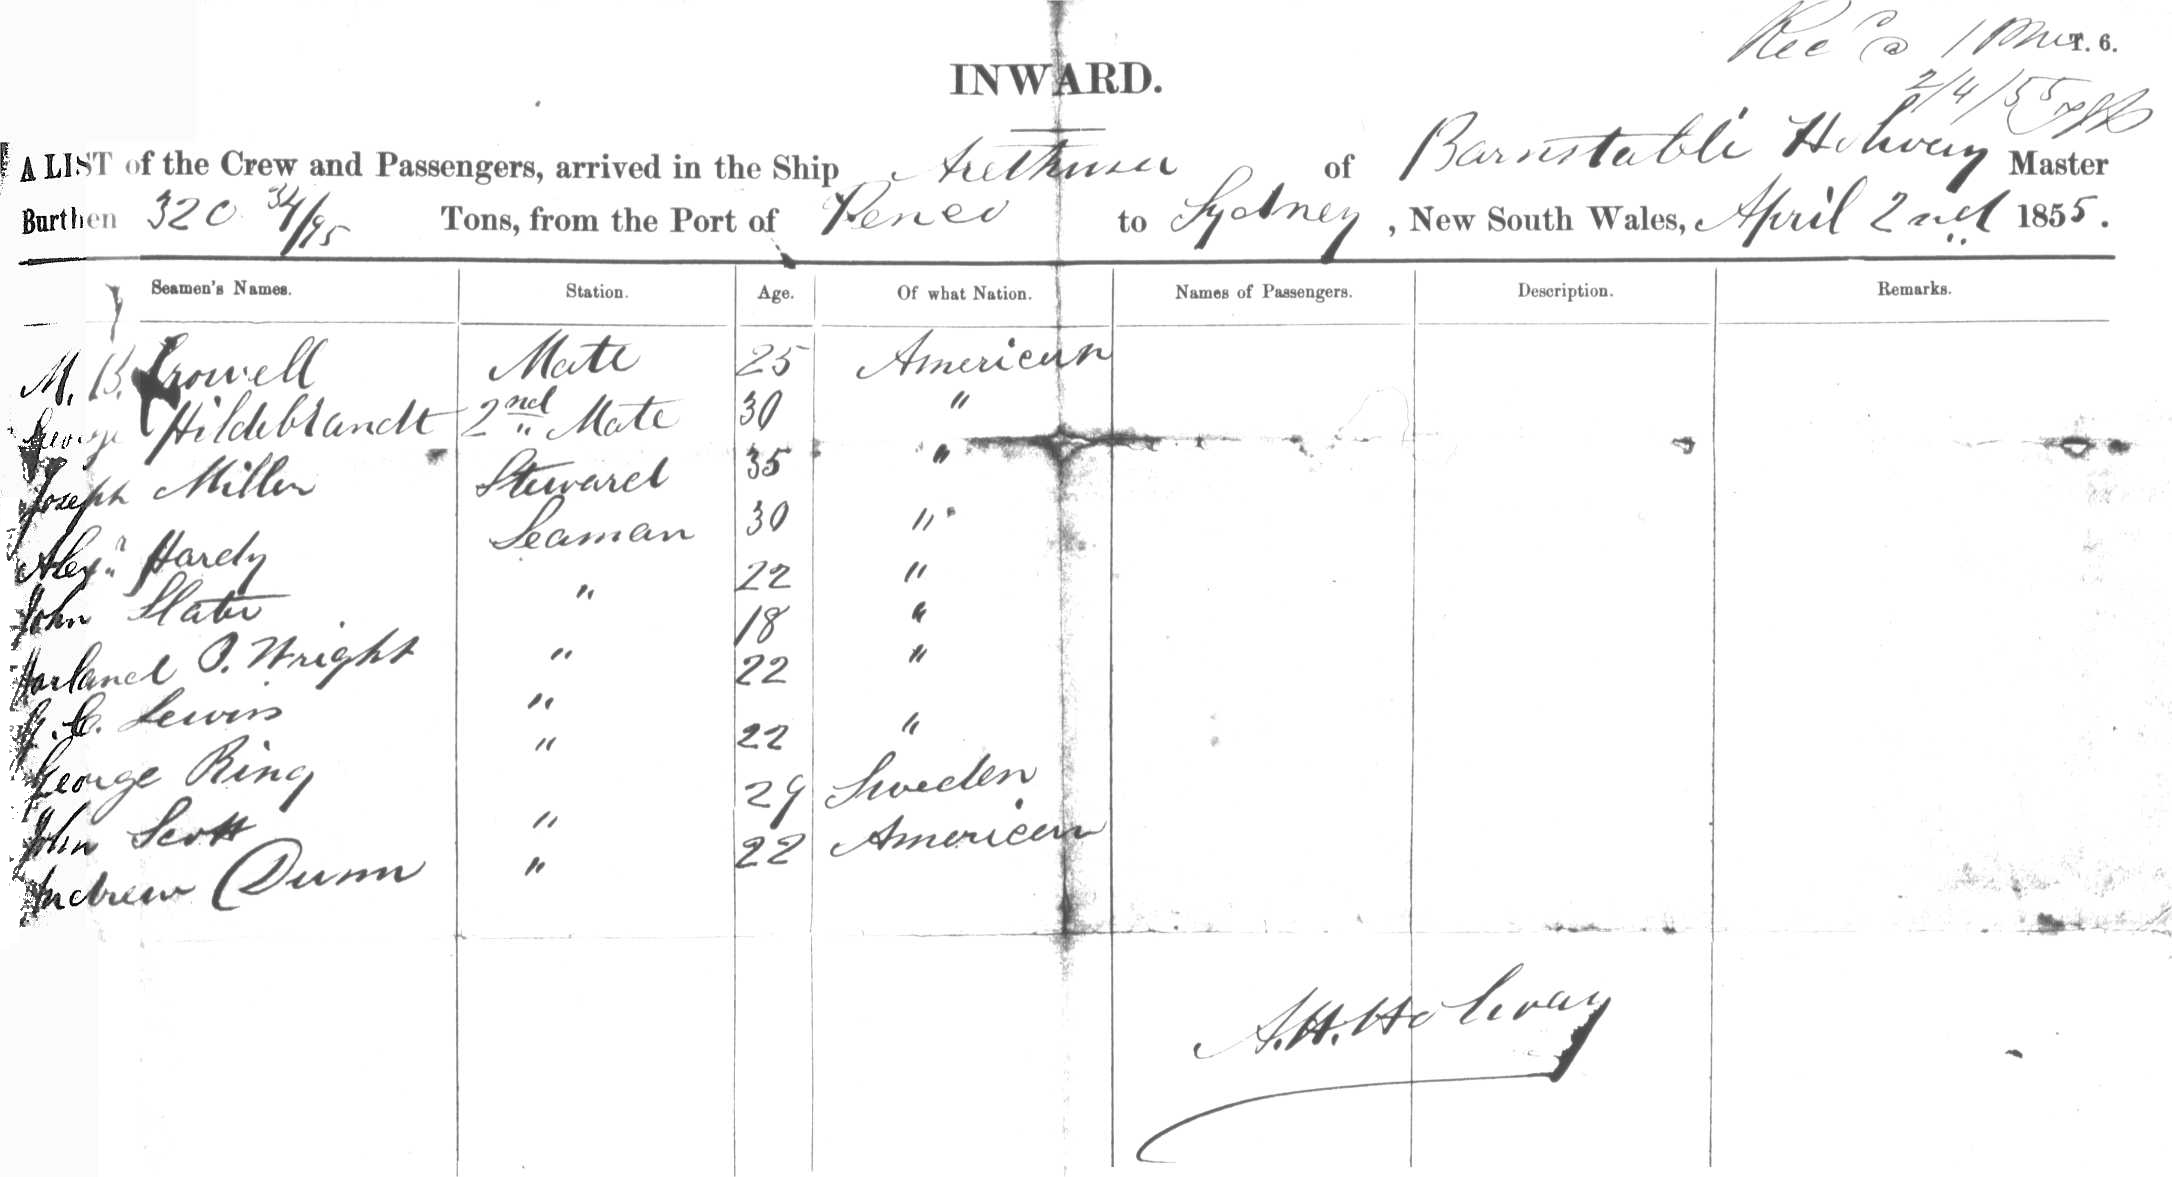 T. 6.
INWARD.
2/4/55
A LIST of the Crew and Passengers, arrived in the Ship Arethusa of Barnstable Holway Master
Burthen 320 34/95 Tons, from the Port of to Sydney, New South Wales, April 2nd 1855.
Seamen's Names. Station. Age. Of what Nation. Names of Passengers. Description. Remarks.
M. B. Crowell Mate 25 American
George Hildebrandt 2nd Mate 30 "
Joseph Miller Steward 35 "
Alexr Hardy Seaman 30 "
John Slater " 22 "
Harland P. Wright " 18 "
C. Lewis " 22 "
George Ring " 22 "
John Scott " 29 Sweden
Andrew Dunn " 22 American
A.H. Holway